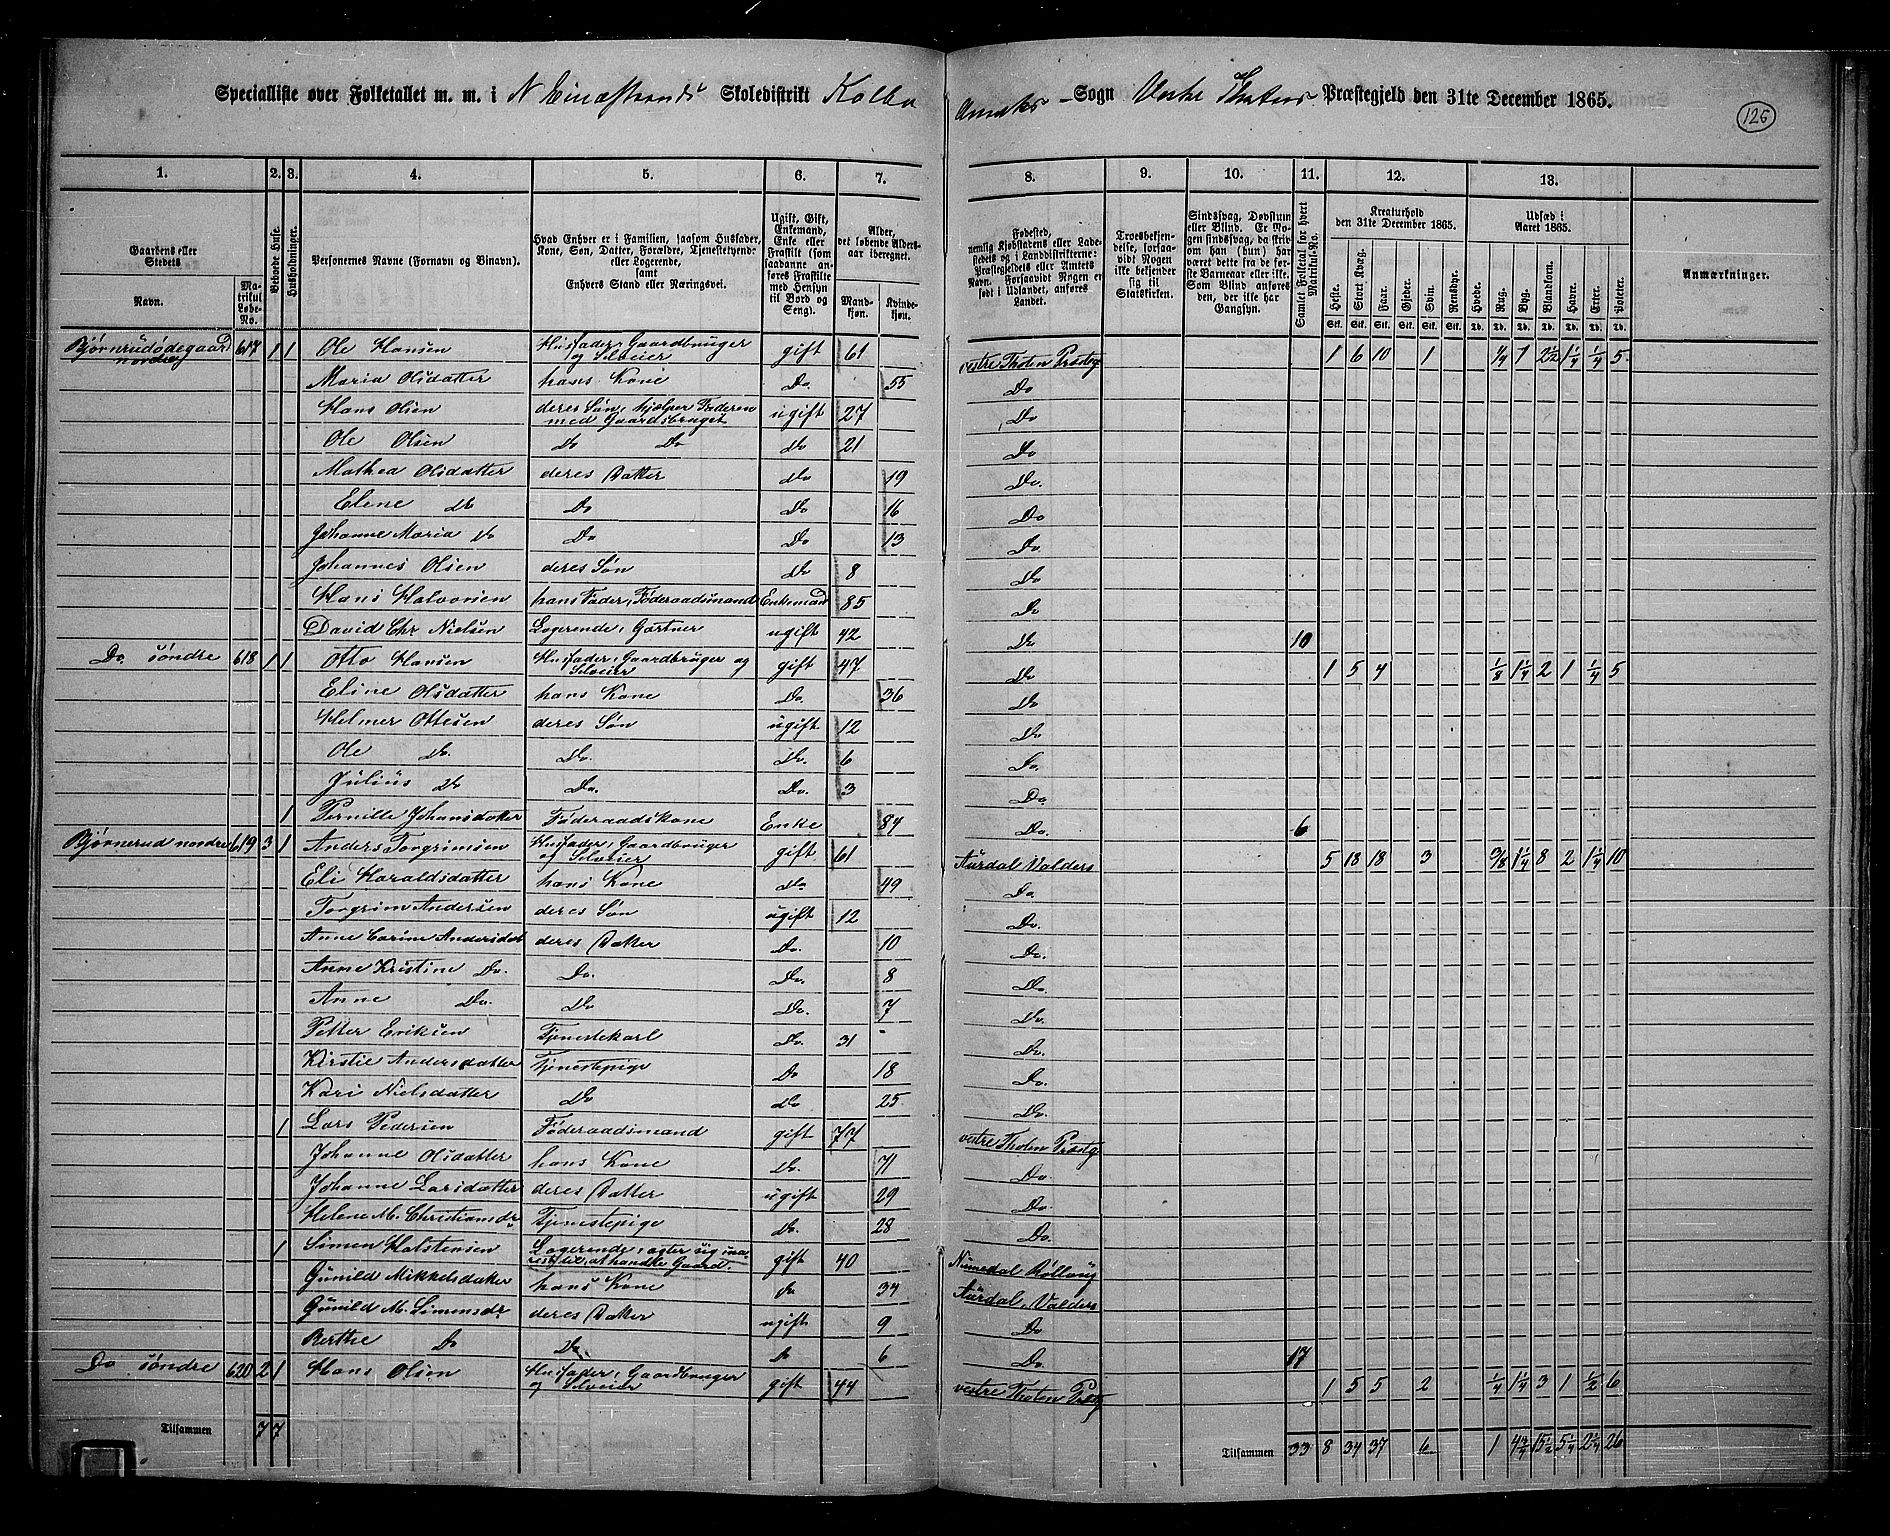 Specialliste over Folketallet m. m. i N Einastrands Skoledistrikt Kolbu Anneks-Sogn Vestre Thotens Præstegjeld den 31te December 1865.
126
1. 2. 3. 4. 5. 6. 7. 8. 9. 10. 11. 12. 13.
Gaardens eller Stedets
Navn.
Matrikul Løbe-No.
Beboede Huse.
Husholdninger.
Personernes Navne (Fornavn og Binavn).
Hvad Enhver er i Familien, saasom Husfader, Kone, Søn, Datter, Forældre, Tjenestetyende eller Logerende, samt Enhvers Stand eller Næringsvei.
Ugift, Gift, Enkemand, Enke eller Fraskilt (som saadanne anføres Fraskilte med Hensyn til Bord og Seng).
Alder, det løbende Aldersaar iberegnet.
Mandkjøn.
Kvindekjøn.
Fødested, nemlig Kjøbstadens eller Ladestedets og i Landdistrikterne: Præstegjeldets eller Amtets Navn. Forsaavidt Nogen er født i Udlandet, anføres Landet.
Troesbekjendelse, forsaavidt Nogen ikke bekjender sig til Statskirken.
Sindssvag, Døvstum eller Blind. Er Nogen sindssvag, da skriv om han (hun) har været dette fra de første Barneaar eller ikke. Som Blind anføres den, der ikke har Gangsyn.
Samlet Folketal for hvert Matrikul-No.
Kreaturhold den 31te December 1865.
Heste. Stort Kvæg. Faar. Gjeder. Svin. Rensdyr.
Udsæd i Aaret 1865.
Hvede. Rug. Byg. Blandkorn. Havre. Erter. Poteter.
Anmærkninger.
Stk. Stk. Stk. Stk. Stk. Stk. Td. Td. Td. Td. Td. Td. Td.
Bjørnerudødegaard nordre 617 1 1 Ole Hansen Husfader, Gaardbruger og Selveier gift 61 vestre Thoten Præstg 1 6 10 1 1/4 1 2 1/2 1 1/4 1/4 5
Maria Olsdatter hans Kone Do. 55 Do
Hans Olsen deres Søn, hjelper Faderen med Gaardsbruget ugift 27 Do
Ole Olsen Do Do do 21 Do
Mathea Olsdatter deres Datter do 19 Do.
Elene do Do Do 16 Do
Johanne Maria Do Do Do 13 Do.
Johannes Olsen deres Søn Do 8 Do
Hans Halvorsen hans Fader, Føderaadsmand Enkemand 85 Do
David Chr Nielsen Logerende, Gartner ugift 42 Do 10
Do. søndre 618 1 1 Otto Hansen Husfader, Gaardbruger og Selveier gift 47 Do 1 5 4 1/8 1 1/4 2 1 1/4 5
Eline Olsdatter hans Kone Do. 36 Do
Helmer Ottesen deres Søn ugift 12 Do
Ole Do. Do. Do. 6 Do.
Julius Do Do. Do. 3 Do
1 Pernille Johansdatter Føderaadskone Enke 84 Do. 6
Bjørnerud nordre 619 3 1 Anders Torgrimsen Husfader, Gaardbruger og Selveier gift 61 Aurdal Valders 5 18 18 3 3/8 1 1/4 8 2 1 1/4 10
Eli Haraldsdatter hans Kone do 49 Do.
Torgrim Andersen deres Søn ugift 12 Do.
Anne Carine Andersdat deres Datter Do. 10 Do.
Anne Kristine Do. Do. Do. 8 Do.
Anne Do. Do Do. 7 Do.
Petter Eriksen Tjenestekarl Do. 31 Do.
Kirstie Andersdatter Tjenestepige Do 18 Do.
Kari Nielsdatter Do do 25 Do.
1 Lars Pedersen Føderaadsmand gift 77 vestre Thoten Præstg
Johanne Olsdatter hans Kone Do. 71 Do.
Johanne Larsdatter deres Datter ugift 29 Do.
Helene M. Christiansdr Tjenestepige do. 28 Do.
1 Simen Halstensen Logerende, agter sig inarest til at handle Gaard. gift 40 Numedal Rollaug
Gunild Mikkelsdatter hans Kone do 34 Aurdal, Valders
Gunild M. Simensdr deres Datter ugift 9 Do
Berthe Do Do. Do 6 Do. 17
Do søndre 620 2 1 Hans Olsen Husfader, Gaardbruger og Selveier gift 44 vestre Thoten Præstg 1 5 5 2 1/4 1 1/4 3 1 1/2 6
Tilsammen 7 7 Tilsammen 33 8 34 37 6 1 4 3/4 15 1/2 5 1/4 2 1/4 26